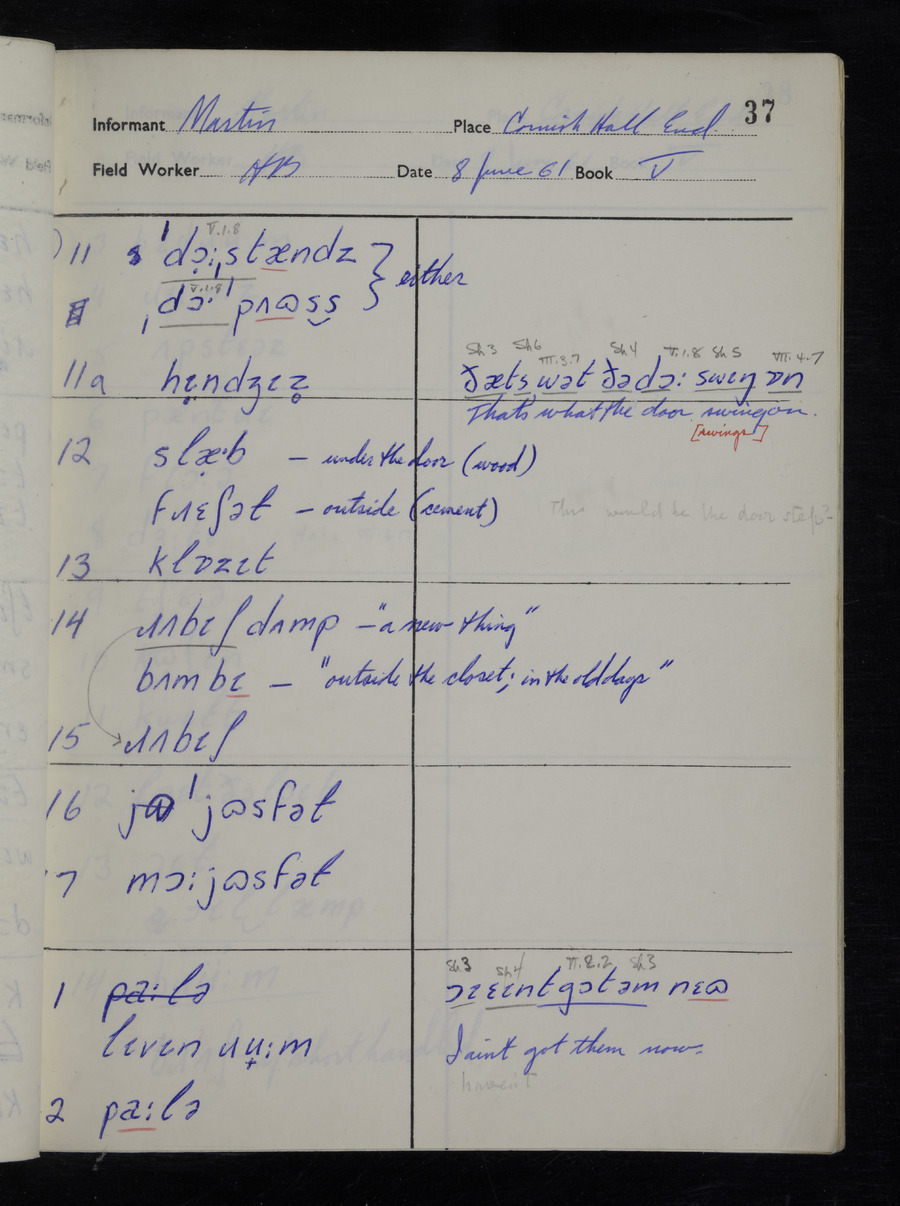 37
Informant Martin Place Cornish Hall End
Field Worker HB Date 8 June 61 Book V
V.1.8
11 ˈdɔːˌstændz } either
V.1.8
ˌdɔˑˈpʌɷss
Sh3 Sh6 III.3.7 Sh4 V.1.8 Sh5 VII.4.7
11a hɛ̣ndʒɪz̥ ðæts wət ðə dɔː swɪŋ ɒn
That's what the door swing on.
[swings]
12 slæˑb – under the door (wood)
fɹɛʃət – outside (cement) This would be the door step?
13 klɒzɪt
14 ɹʌbɪʃ dʌmp – "a new thing"
bʌmbɪ – "outside the closet; in the old days"
15 ɹʌbɪʃ
16 jɷˈjɷsfət
17 mɔːjɷsfət
Sh3 Sh4 VI.2.2 Sh3
1 paːlə ɔɪ ɛɪnt gɔt əm nɛɷ
lɪvɪn ɹʉːm I aint got them now.
haven't
2 paːlə